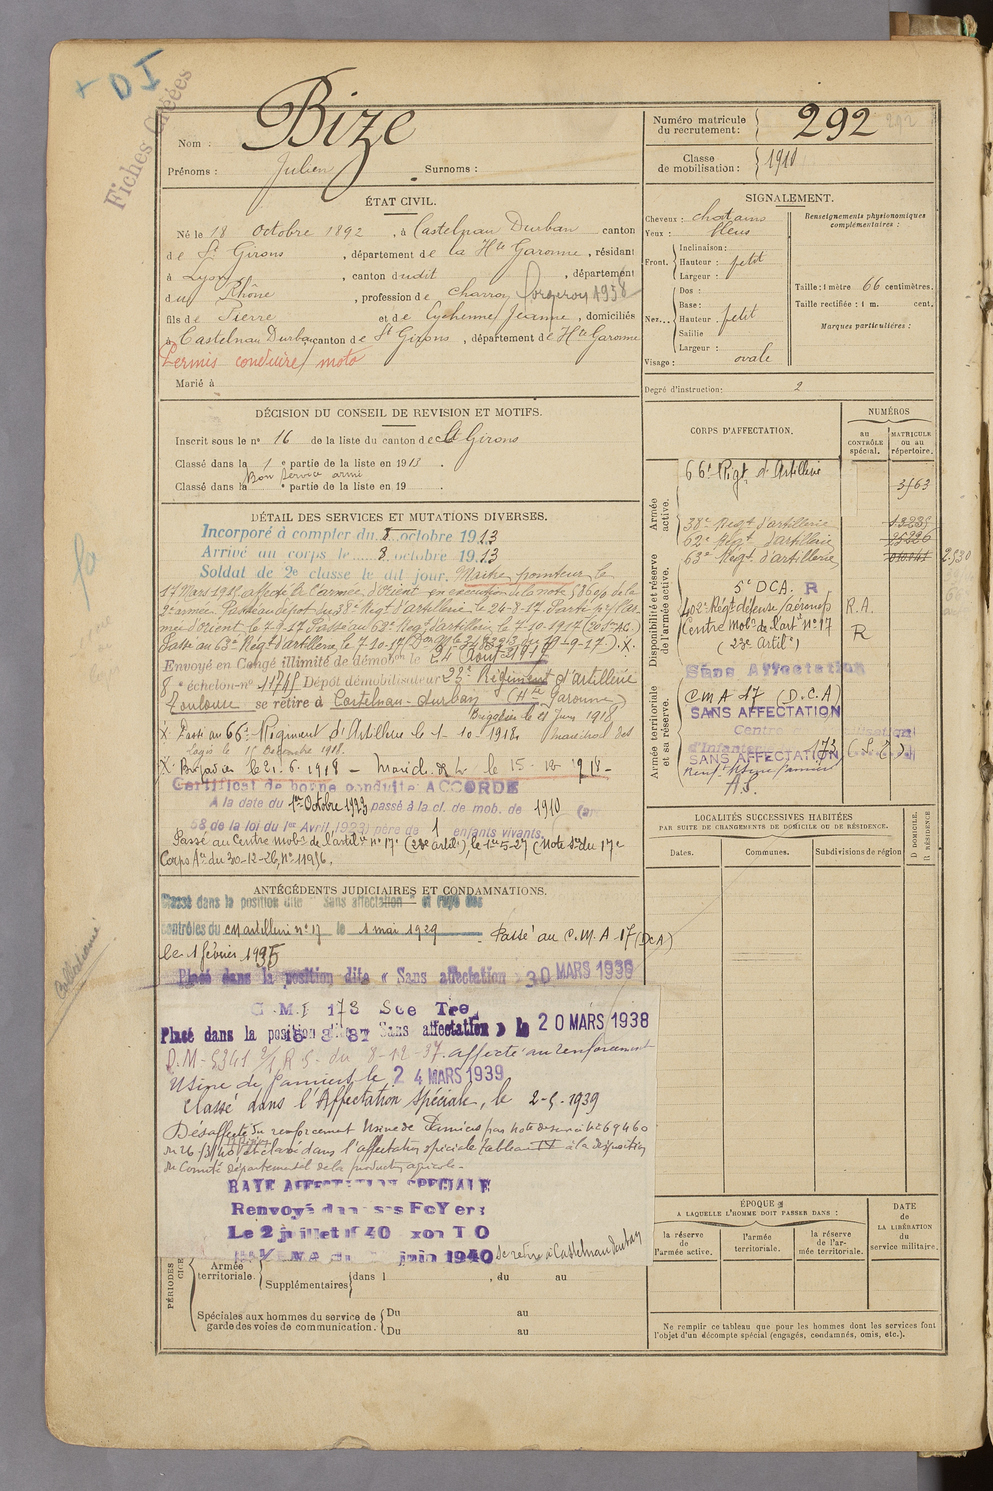 + DI
Fiches
Nom : Bize
Prénoms : Julien Surnoms :
Numéro matricule du recrutement : 292
Classe de mobilisation : 1910
ÉTAT CIVIL.
Né le 18 Octobre 1892, à Castelnau Durban canton
de St Girons, département de la Hte Garonne, résidant
à Lyon, canton dudit, département
du Rhône, profession de charron 1938
fils de Pierre et de Jeanne, domiciliés
à Castelnau Durban canton de St Girons, département de Hte Garonne
Permis conduire moto
Marié à
SIGNALEMENT.
Cheveux : chatains
Yeux : bleus
Front. Inclinaison :
Hauteur : petit
Largeur :
Nez... Dos :
Base :
Hauteur : petit
Saillie
Largeur :
Visage : ovale
Renseignements physionomiques complémentaires :
Taille : 1 mètre 66 centimètres.
Taille rectifiée : 1 m. cent.
Marques particulières :
Degré d'instruction : 2
DÉCISION DU CONSEIL DE REVISION ET MOTIFS.
Inscrit sous le n° 16 de la liste du canton de St Girons
Classé dans la 1e partie de la liste en 1913.
Bon service armé
Classé dans la e partie de la liste en 19 .
CORPS D'AFFECTATION.
NUMÉROS
au CONTRÔLE spécial.
MATRICULE ou au répertoire.
Armée active.
66e Régt d'Artillerie 3763
Disponibilité et réserve de l'armée active.
38e Régt d'artillerie
62e Régt d'artillerie
63e Régt d'artillerie 2530
5e DCA. R
402e Régt défense aériens R.A.
Centre Mobr de l'artie n° 17 R
(23e Artil°)
Armée territoriale et sa réserve.
Sans Affectation
CMA 17 (D.C.A)
SANS AFFECTATION
Centre
d'Infanterie 173
SANS AFFECTATION
A.S.
DÉTAIL DES SERVICES ET MUTATIONS DIVERSES.
Incorporé à compter du 8 octobre 1913
Arrivé au corps le 8 octobre 1913
Soldat de 2e classe le dit jour. Maitre pointeur le
17 Mars 1915 affecté à l'armée d'Orient en exécution de la note
2e armée. Passé au dépot du 38e Régt d'Artillerie le 24-8-17. Parti
d'Orient le 7-9-17. Passé au 62e Régt d'Artillerie, le 7-10-1917
Passé au 63e Régt d'Artillerie, le 7-10-17
Envoyé en Congé illimité de démobon le 24 Aout 1919
8e échelon-n° 11745 Dépôt démobilisateur 23e Régiment d'artillerie
Toulouse se retire à Castelnau-durban (Hte Garonne)
Brigadier le 21 Juin 1918,
X Passé au 66e Régiment d'Artillerie le 1-10-1918. maréchal des
Logis le 15 Décembre 1918.
X Brigadier le 21.6.1918 - Maréch. d. L. le 15-12-1918 -
Certificat de bonne conduite ACCORDÉ
A la date du 1er Octobre 1923 passé à la cl. de mob. de 1910 (art
58 de la loi du 1er Avril 1923) père de 1 enfants vivants.
Passé au Centre Mobr de l'artie n° 17 (23e artil°), le 1er 5-27 (Note Sce du 17e
Corps Ar du 30-12-26, N° 11916.
LOCALITÉS SUCCESSIVES HABITÉES
PAR SUITE DE CHANGEMENTS DE DOMICILE OU DE RÉSIDENCE.
Dates. Communes. Subdivisions de région
D DOMICILE.
R RÉSIDENCE
ANTÉCÉDENTS JUDICIAIRES ET CONDAMNATIONS.
Classé dans la position dite "Sans affectation" et rayé des
contrôles du CM artillerie n° 17 le 1 mai 1929 Passé au C.M.A 17 (DCA)
le 1 février 1935
Placé dans la position dite « Sans affectation » 30 MARS 1936
C.M.I 173 Sce Tre
Placé dans la position dite Sans affectation » le 20 MARS 1938
D.M-5341 2/R.S. du 8-12-37. affecté au renforcement
Usine de Pamiers le 24 MARS 1939
Classé dans l'Affectation Spéciale, le 2-5-1939
Désaffecté du renforcement Usine de Pamiers par Note de service N° 69460
du 26/3/40 et classé dans l'affectation spéciale tableau IV à la disposition
du Comité départemental de la production agricole-
RAYE AFFECTATION SPECIALE
Renvoyé dans ses FoYers
Le 2 juillet 1940
juin 1940 se retire à Castelnau durban
PÉRIODES
Armée territoriale. Supplémentaires dans l , du au
Spéciales aux hommes du service de garde des voies de communication. Du au
Du au
ÉPOQUE
A LAQUELLE L'HOMME DOIT PASSER DANS :
la réserve de l'armée active.
l'armée territoriale.
la réserve de l'armée territoriale.
DATE de LA LIBÉRATION du service militaire.
Ne remplir ce tableau que pour les hommes dont les services font
l'objet d'un décompte spécial (engagés, condamnés, omis, etc.).